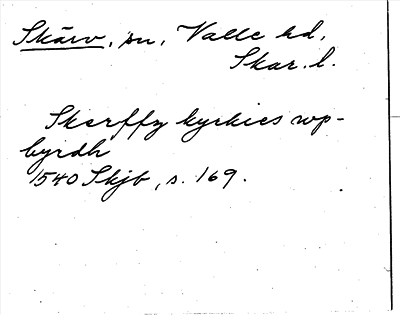 Skärv, sn, Valle hd,
Skar. l.
Skerffz kyrkies wp-
byrdh
1540 Skjb, s. 169.